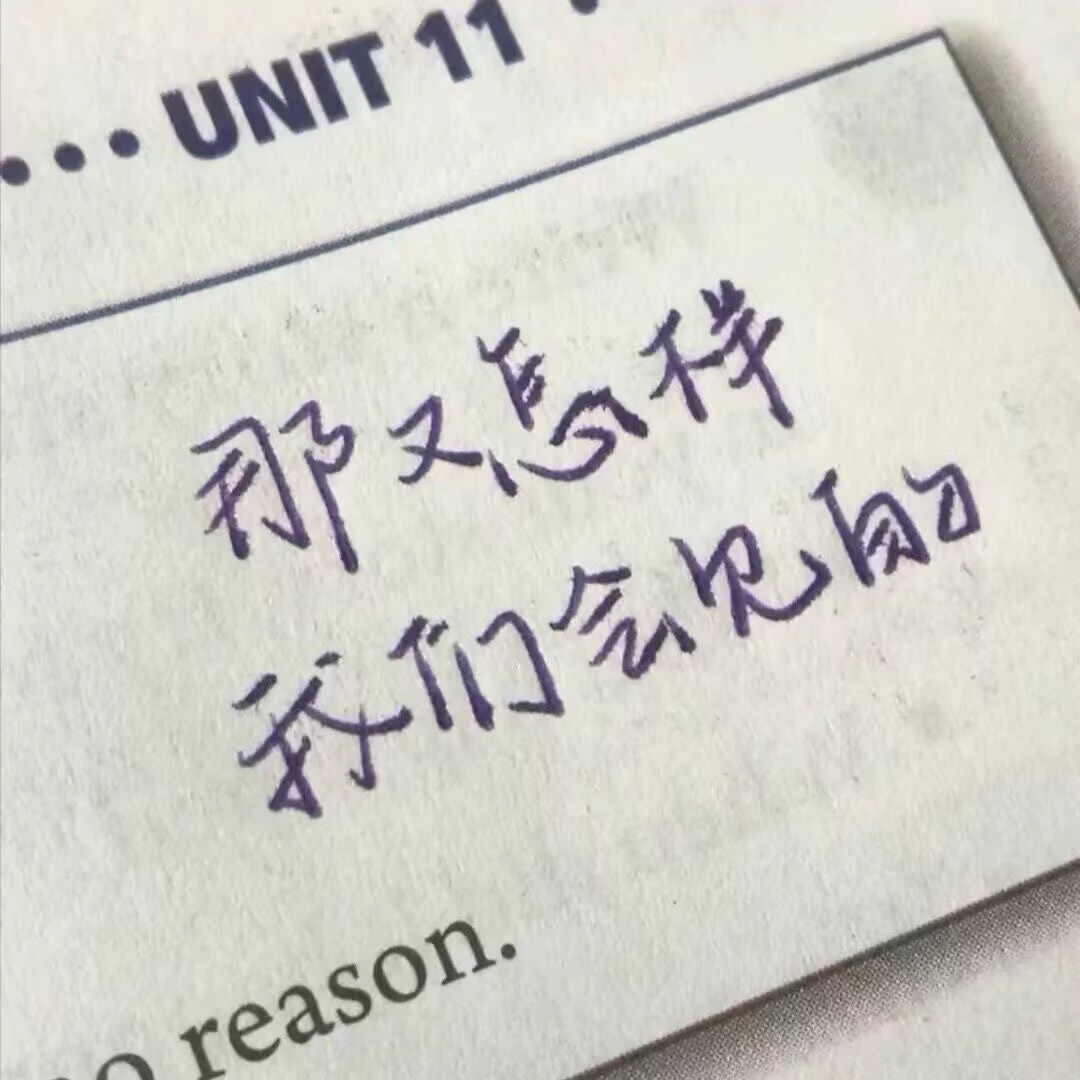 ••• UNIT 11 •
那又怎样
我们会见的
no reason.